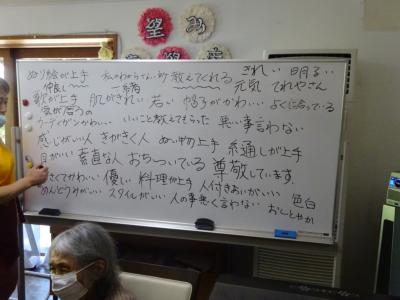 望み
ぬり絵が上手 私のわからない所教えてくれる きれい 明るい
仲良し 一部屋 元気 てれやさん
歌が上手 肌がきれい 若い 帽子がかわいい よくに合っている
気が合う
カーディガンかわいい いいこと教えてもらった 悪い事言わない
感じがいい人 きがきく人 ぬい物の上手 糸通しが上手
目がいい 素直な人 おちついている 尊敬しています。
さくてかわいい 優しい 料理が上手 人付きあいがいい 色白
めんどうみがいい スタイルがいい 人の事悪く言わない おしとやか